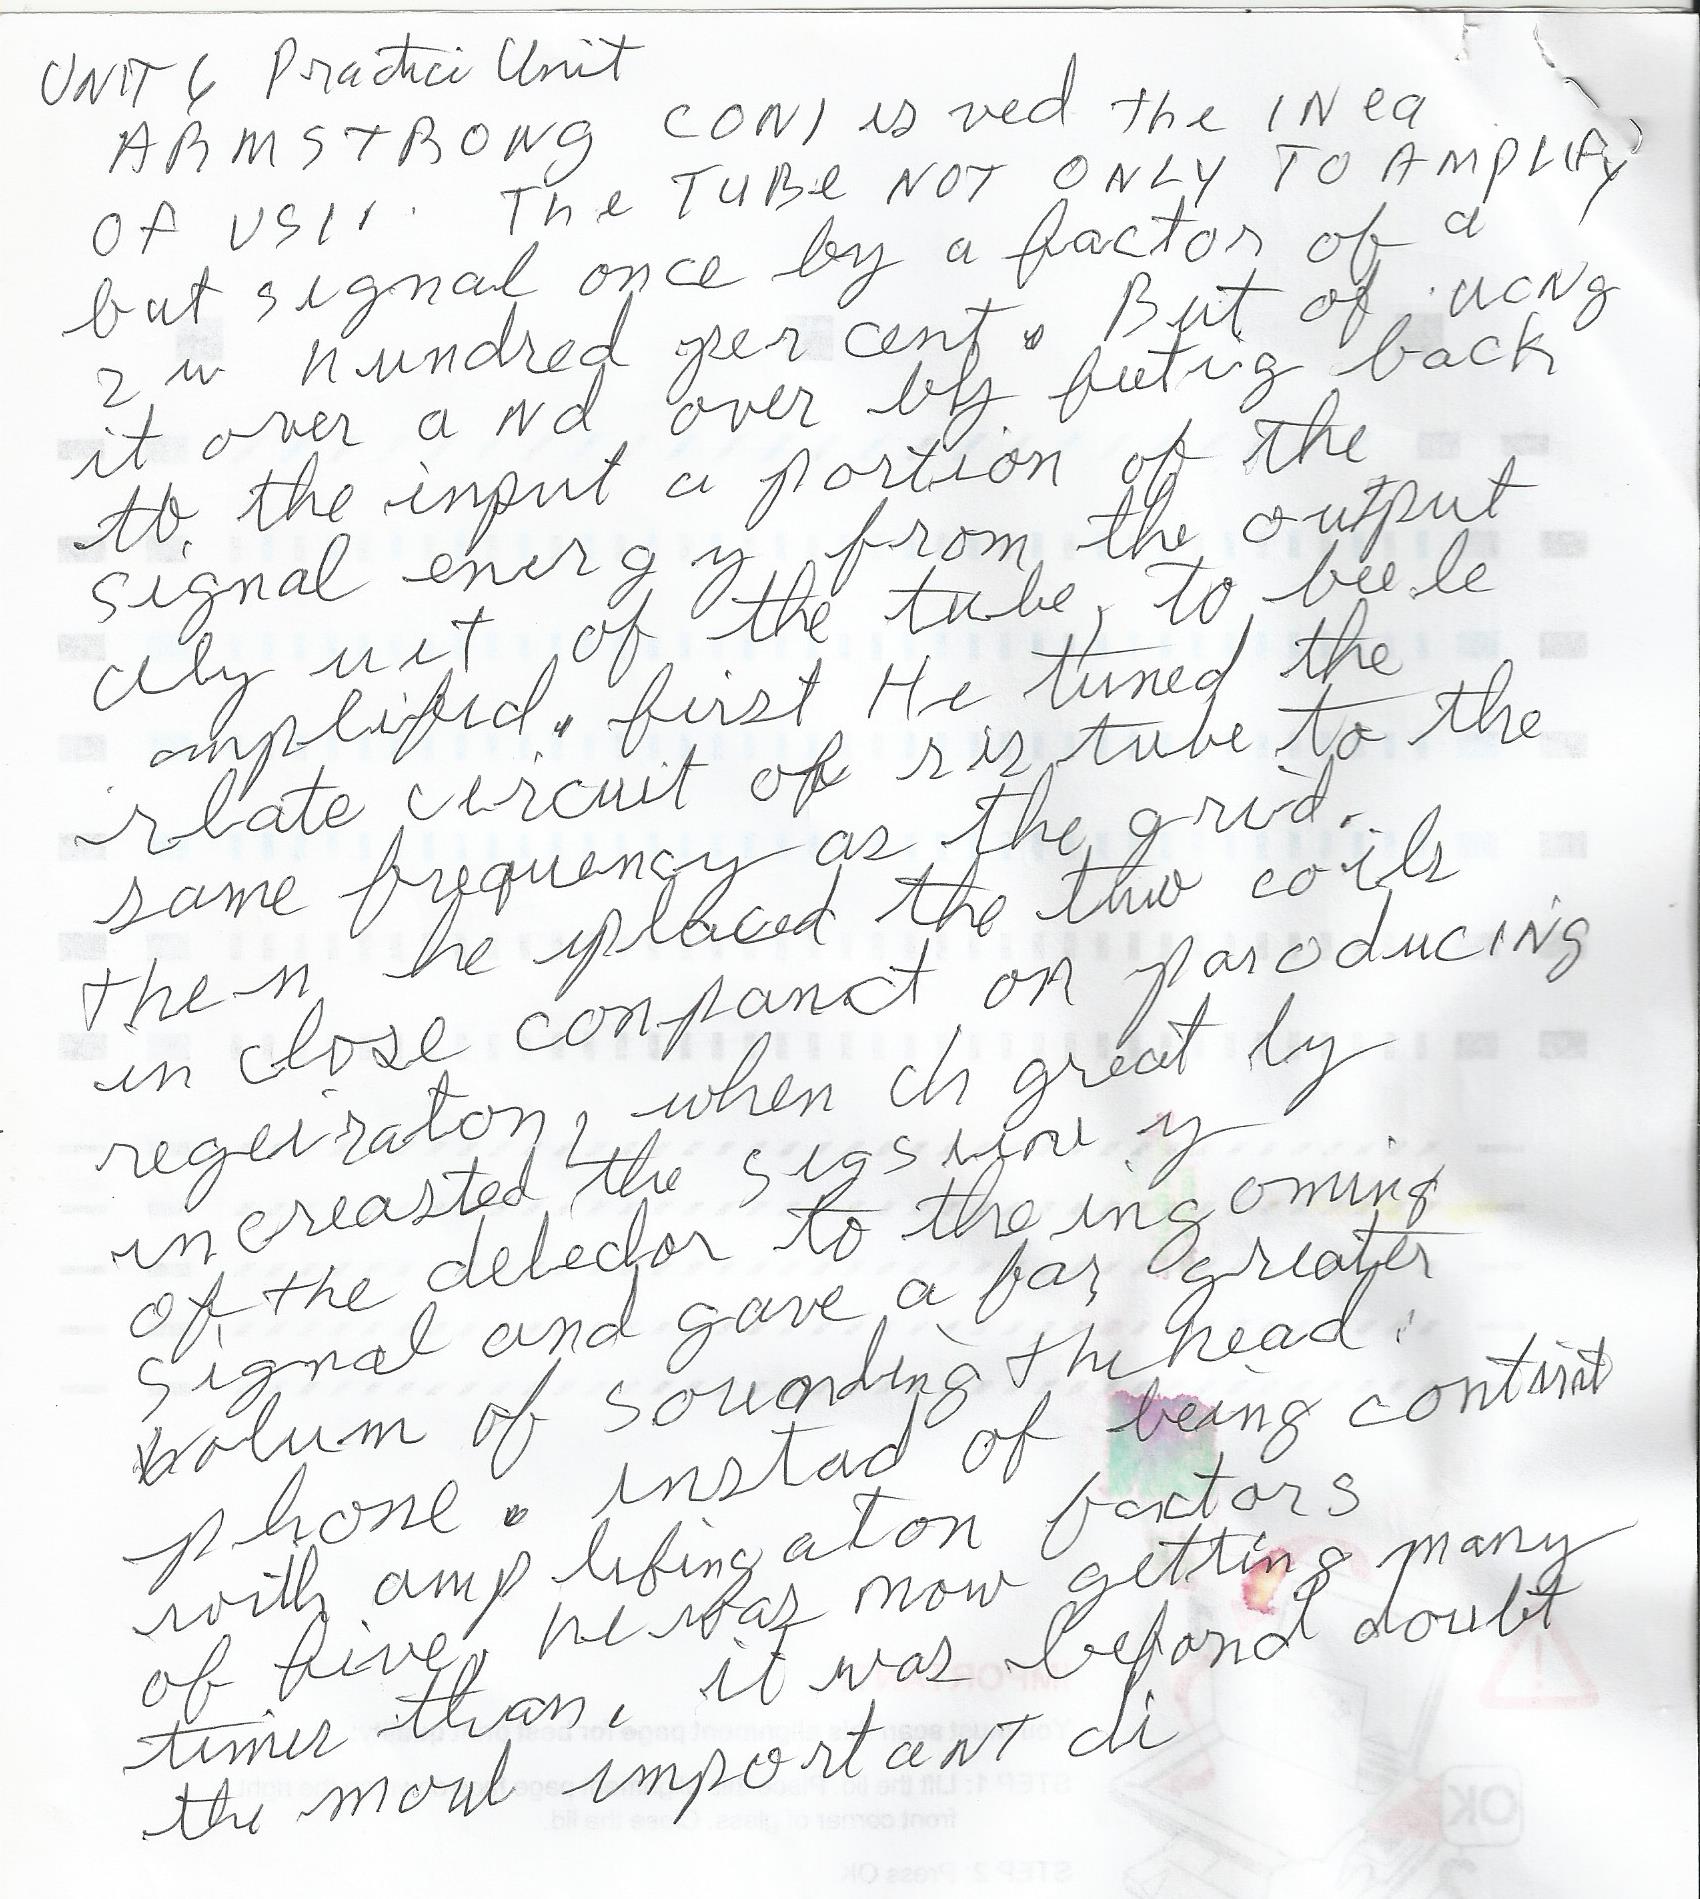 UNIT 6 Practice Unit
ARMSTRONG CON1 is ved the INea
OF US11. The TUBe NOT ONLY TO AMPLIFY
but signal once by a factor of a
2 w hundred per cent. But of ucNg
it over a Nd over by futig back
to the input a portion of the
signal energy from the output
of the tube, to be
amplifid. first He tuned the
circuit of sis tube to the
same frequency as the grid.
then he placed the two coils
in close conpanct on paroducINg
regeiraton, when ch great ly
increasted the
of the deledor to the ingoming
signal and gave a far greater
volum of sounding the head
phone. instad of being contint
with amp lifing aton factors
of five, he was now getting many
times than, it was befond doubt
the moul important di